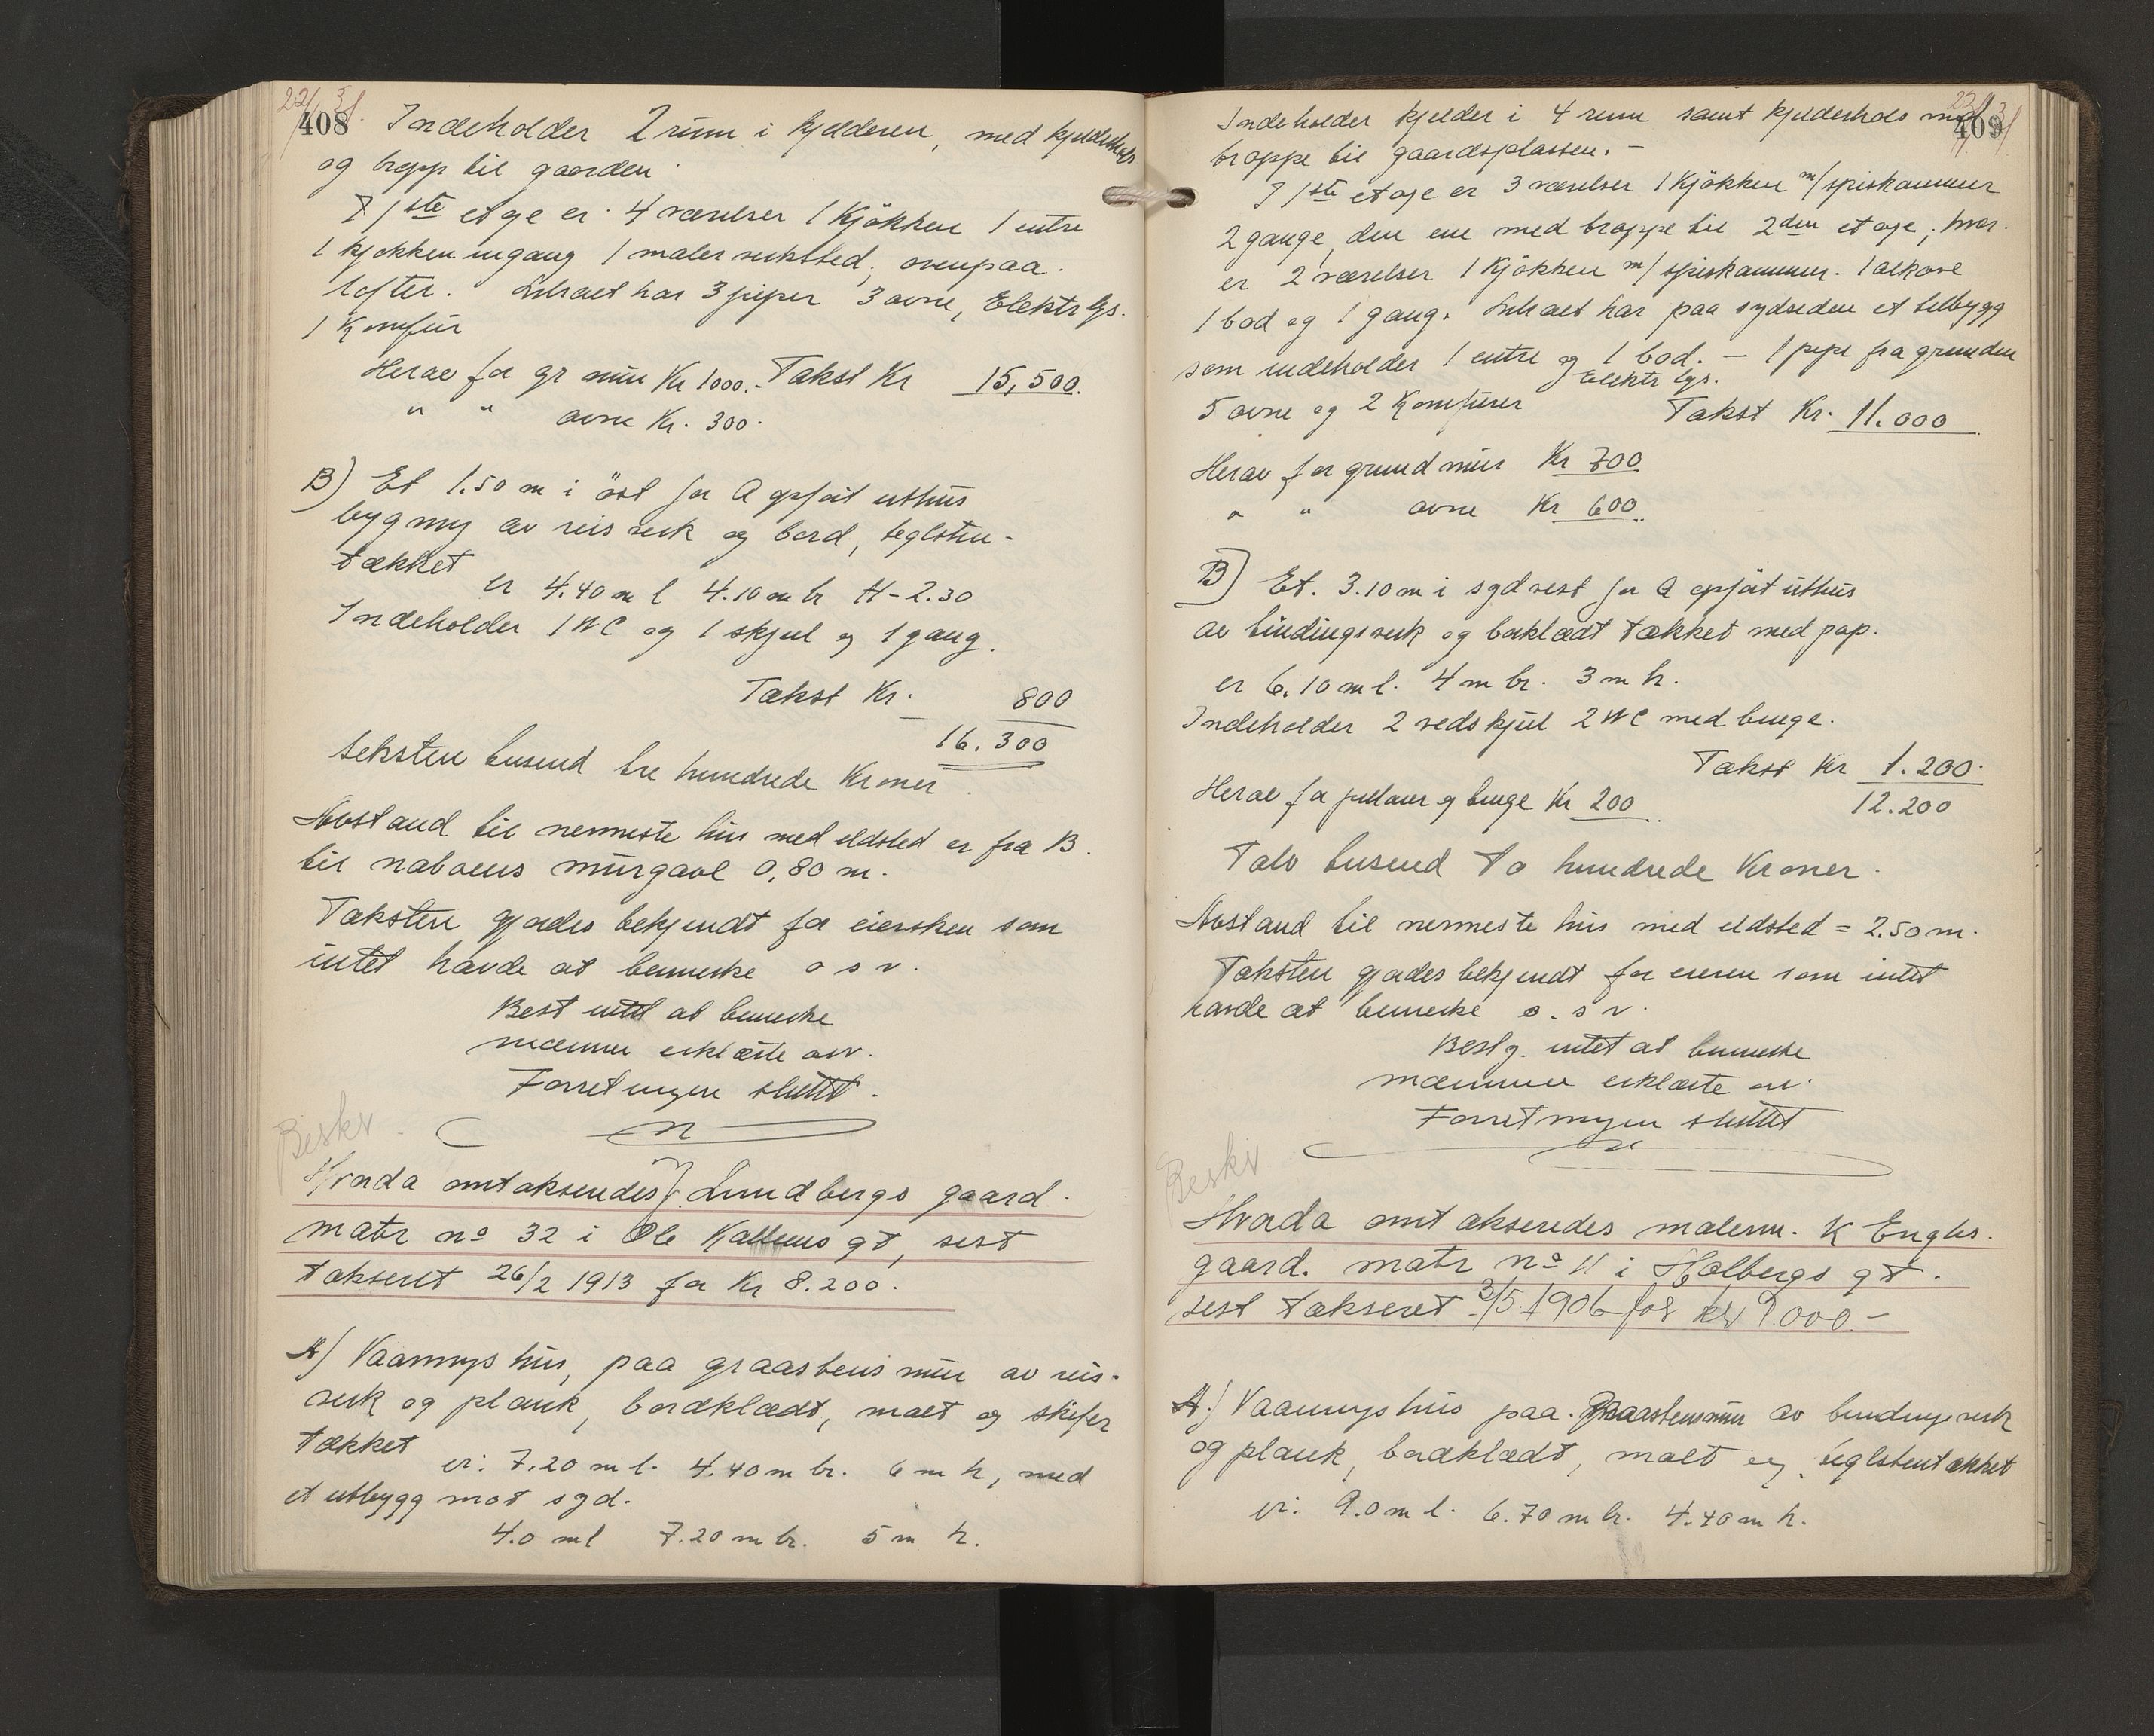 408
Indeholder 2 rum i kjelderen, med kjelderhals
og trapp til gaarden.
I 1ste etage er 4 værelser 1 Kjökken 1 entre
1 kjøkkeningang 1 malerverksted, ovenpaa
lofter. Huset har 3 piper 3 ovne, Elektr lys.
1 Komfür
Herav for gr mür Kr 1000.- Takst Kr 15,500.
" " ovne Kr. 300.
B) Et 1.50 m i öst for A opført uthüs
bygning av reisverk og bord, teglsten-
tækket
er 4.40 m l 4.10 m br H - 2.30
Indeholder 1 WC og 1 skjul og 1 gang.
Takst Kr. 800
16.300
Seksten tusend tre hundrede Kroner.
Avstand til nermeste hüs med ildsted er fra B.
til naboens mürgavl 0,80 m.
Taksten gjordes bekjendt for eiersken som
intet havde at bemerke o s v.
Best intet at bemerke
mænnene erklærte osv.
Forretningen sluttet.
Beskr.
Hvorda omtakseredes J. Lundbergs gaard.
matr no 32 i Ole Kallems gt, sist
takseret 26/2 1913 for Kr 8.200.
A) Vaaningshüs, paa graastens mür av reis-
verk og plank, bordklædt, malt og skifer
tækket er: 7.20 m l. 4.40 m br. 6 m h, med
et utbygg mot syd.
4.0 m l 7.20 m br. 5 m h.
409
Indeholder kjelder i 4 rum samt kjelderhals med
trappe til gaardsplassen. -
I 1ste etage er 3 værelser 1 Kjökken m/spiskammer
2 gange, den ene med trappe til 2den etage, hvor.
er 2 værelser 1 Kjökken m/ spiskammer. 1 alkove
1 bod og 1 gang. Huset har paa sydsiden et tilbygg
som indeholder 1 entre og 1 bod. - 1 pipe fra grunden
Elektr lys.
5 ovne og 2 Komfürer Takst Kr. 11.000
Herav for grundmür Kr 700
" " ovne Kr 600
B) Et. 3.10 m i sydvest for A opført üthüs
av bindingsverk og bordklædt tækket med pap.
er 6.10 m l. 4 m br. 3 m h.
Indeholder 2 vedskjul 2 WC med binge.
Takst Kr 1.200.
Herav for pillarer og binge Kr 200 12.200
Tolv tusend to hundrede Kroner.
Avstand til nermeste hüs med ildsted = 2.50 m.
Taksten gjordes bekjendt for eieren som intet
havde at bemerke o. s v.
Bestg. intet at bemerke
mænnene erklærte osv.
Forretningen sluttet
Beskr
Hvorda omtakseredes malerm. K Enghs.
gaard. matr no 11 i Holbergs gt.
sist takseret 3/5. 1906 for kr 9.000.-
A.) Vaaningshüs paa. Graastensmür av bindingsverk
og plank, bordklædt, malt og teglstentækket
er: 9.0 m l. 6.70 m br. 4.40 m h.